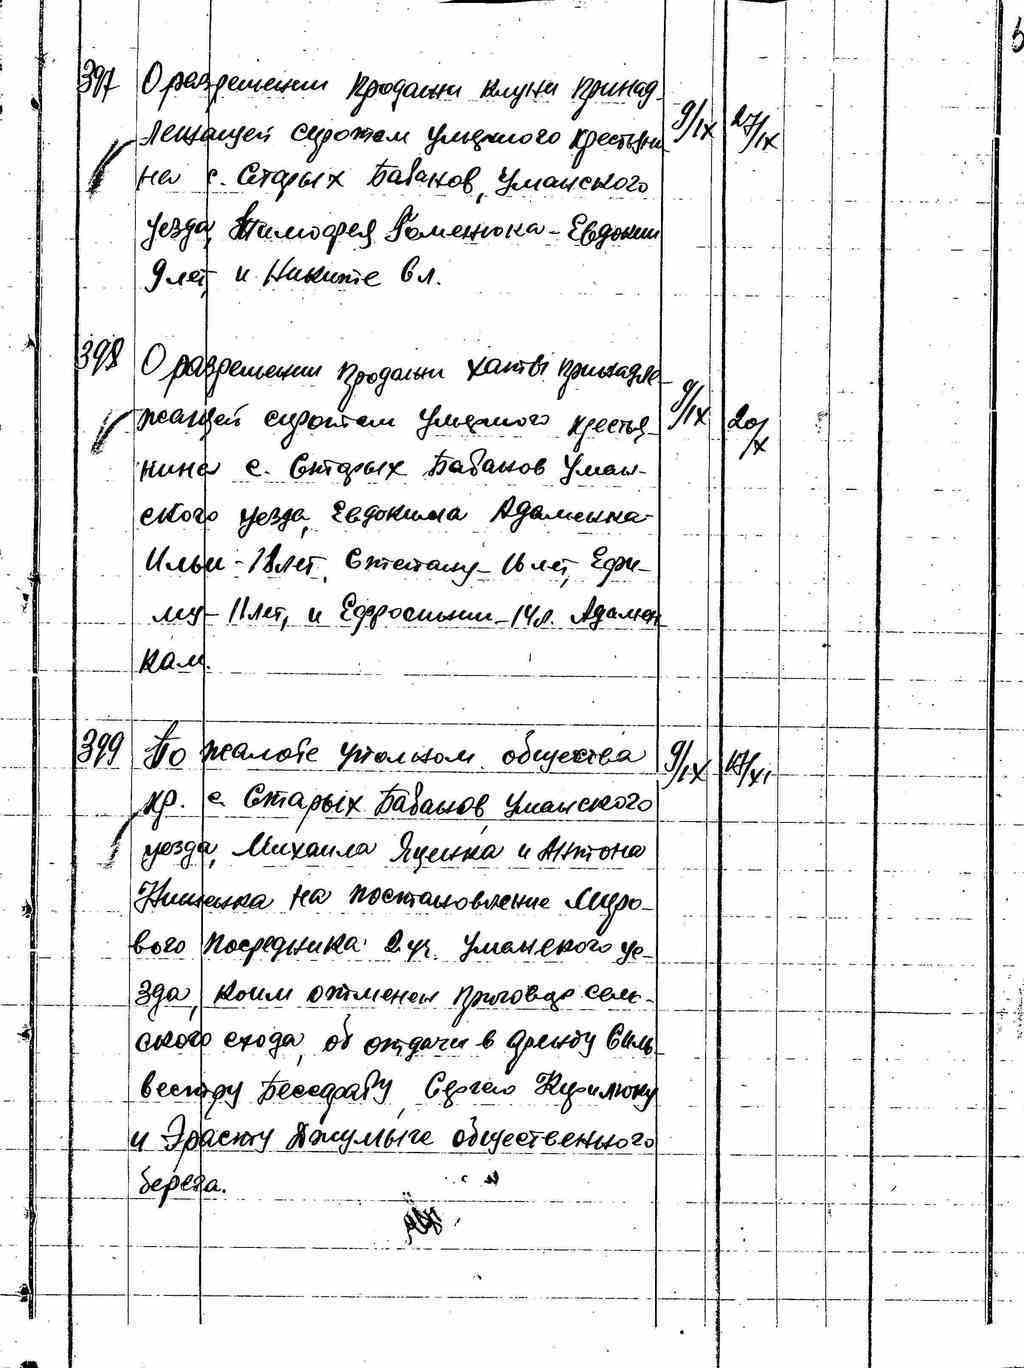 397 О разрешении продажи клуни принад-
лежащей сиротам умершого крестьяни- 9/IX 27/IX
на с. Старых Бабанов, Уманского
уезда, Тимофея Гоменюка - Евдокии
9 лет, и Никите 6 л.
398 О разрешении продажи хаты принадле-
жащей сиротам умершого кресть- 9/IX 20/X
янина с. Старых Бабанов Уман-
ского уезда, Евдокима Адаменка
Ильи - 18 лет, Степану - 16 лет, Ефи-
му - 11 лет, и Ефросинии - 14 л. Адамен
кам.
399 По жалобе уполном. общества 9/IX 17/XI
кр. с Старых Бабанов, Уманского
уезда, Михаила Яценка и Антона
на постановление Миро-
вого Посредника 2 уч. Уманского уе-
зда, коим отменен приговор сель-
ского схода, об отдачи в аренду Силь-
вестру Бессарабу, Сергею Курилюку
и Эрасту общественного
берега.